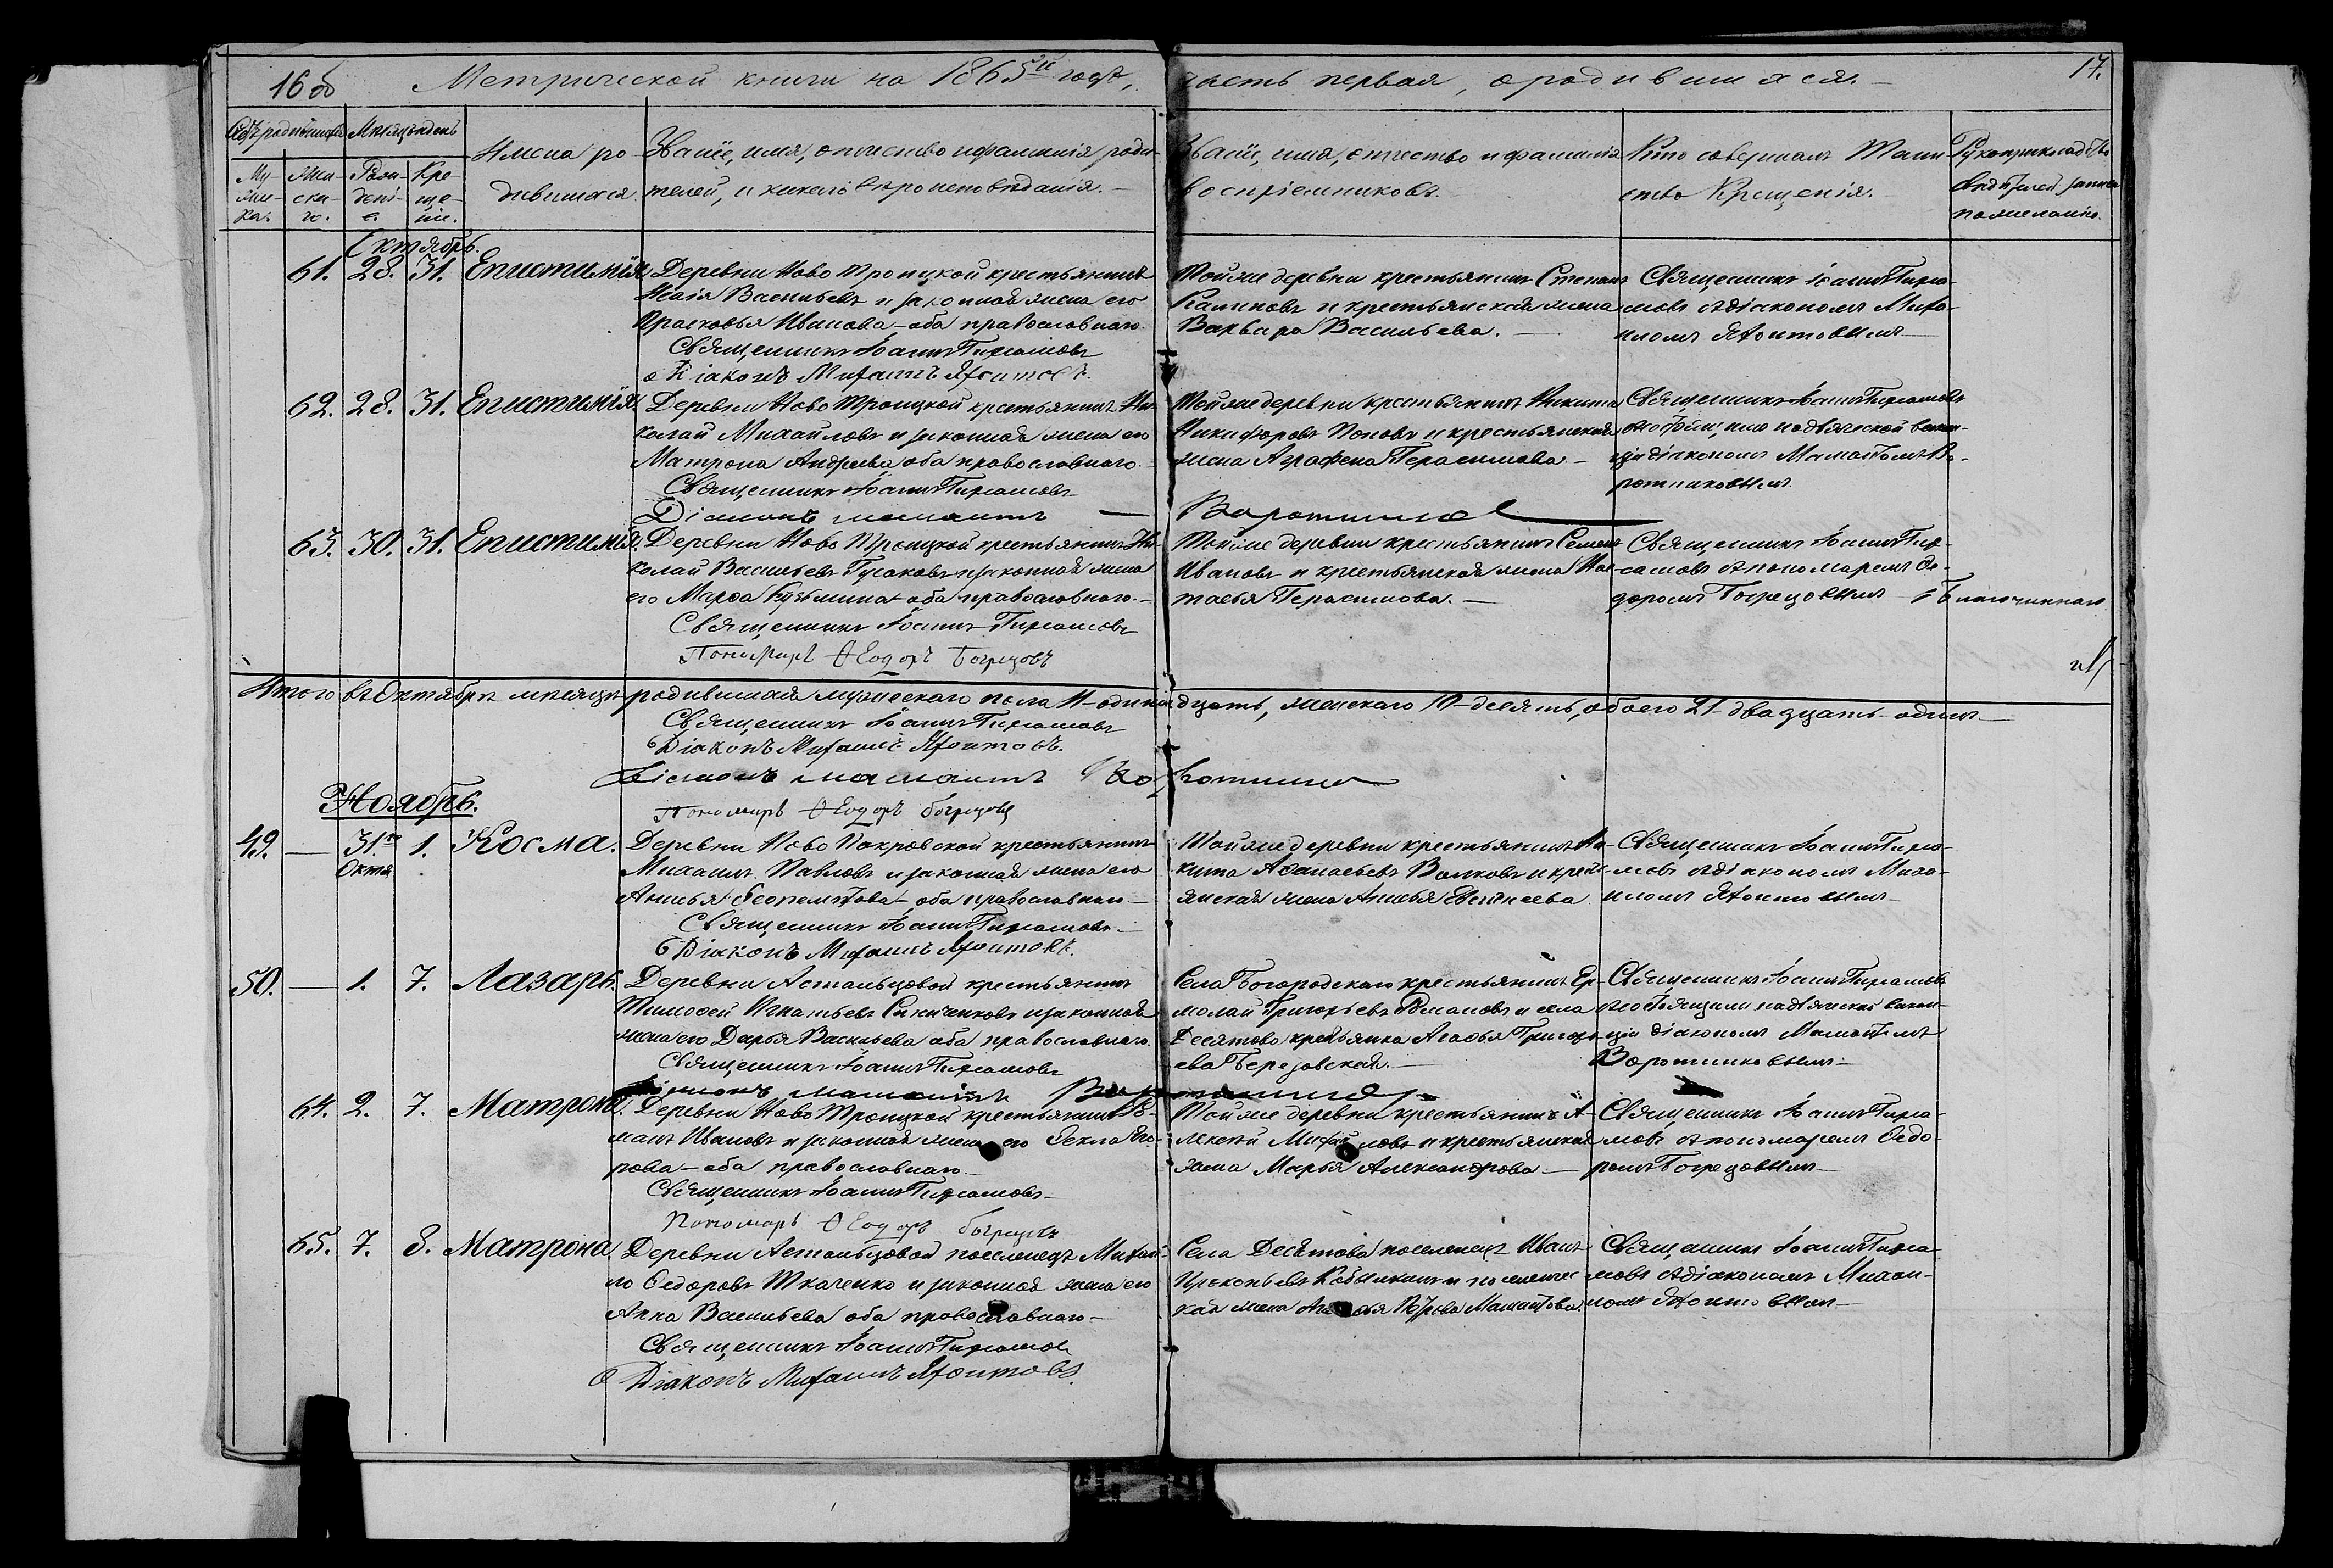 16 об Метрической книги на 1865й годъ, часть первая, о родившихся. 17.
Счетъ родившихся Мѣсяцъ и день
Му-
жес-
ка. Жен-
ска-
го. Рож-
дені-
е. Кре-
ще-
ніе.
Имена ро-
дившихся.
Званіе, имя, отчество и фамилія роди-
телей, и какого вѣроисповѣданія.
Званіе, имя, отчество и фамилія
воспріемниковъ.
Кто совершалъ Таин-
ство Крещенія.
Рукоприкладство
свидѣтелей записи
по желанію.
Октябрь.
61. 28. 31. Епистимія
Деревни Ново Троицкой крестьянинъ
Васильевъ и законная жена его
Прасковья Иванова оба православнаго.
Священникъ Іоаннъ
Діаконъ Михаилъ Яхонтовъ.
Той же деревни крестьянинъ Степанъ
Калиновъ и крестьянская жена
Варвара Васильева.
Священникъ Іоаннъ
съ діакономъ Миха-
иломъ Яхонтовымъ
62. 28. 31. Епистимія
Деревни Ново Троицкой крестьянинъ Ни-
колай Михайловъ и законная жена его
Матрона Андреева оба православнаго.
Священникъ Іоаннъ
Діаконъ Мамантъ Воротников
Той же деревни крестьянинъ Никита
Никифоровъ Поповъ и крестьянская
жена Аграфена Герасимова
Священникъ Іоаннъ
діакономъ Мамантомъ Во-
ротниковымъ.
63. 30. 31. Епистимія.
Деревни Ново Троицкой крестьянинъ Ни-
колай Васильевъ Гусаковъ и законная жена
его Марѳа Кузьмина оба православнаго.
Священникъ Іоаннъ
Пономарь Ѳеодоръ Богрецовъ
Той же деревни крестьянинъ Семенъ
Ивановъ и крестьянская жена Нас-
тасья Герасимова.
Священникъ Іоаннъ
съ пономаремъ Ѳе-
доромъ Богрецовымъ
Благочиннаго
Итого въ Октябрѣ мѣсяцѣ родившихся мужескаго пола 11-одинадцать, женскаго 10-десять, обоего 21-двадцать одинъ.
Священникъ Іоаннъ
Діаконъ Михаилъ Яхонтовъ.
Діаконъ Мамантъ Воротников
Пономарь Ѳеодоръ Богрецовъ
Ноябрь.
49. — 31го 1. Косма.
Октя
Деревни Ново Покровской крестьянинъ
Михаилъ Павловъ и законная жена его
Анисья оба православнаго
Священникъ Іоаннъ
Діаконъ Михаилъ Яхонтовъ.
Той же деревни крестьянинъ Ни-
кита Аѳанасьевъ Волковъ и кресть-
янская жена Анисья Евсѣева
Священникъ Іоаннъ
съ діакономъ Миха-
иломъ Яхонтовымъ
50. — 1. 7. Лазарь.
Деревни Астальцовой крестьянинъ
Тимоѳей Игнатьевъ и законная
жена его Дарья Васильева оба православнаго.
Священникъ Іоаннъ
Діаконъ Мамантъ Воротников
Села Богородскаго крестьянинъ Ер-
молай Григорьевъ Романовъ и села
Десятова крестьянка Агаѳья Григорь-
ева Березовская.
Священникъ Іоаннъ
діакономъ Мамантомъ
Воротниковымъ
64. 2. 7. Матрона.
Деревни Ново Троицкой крестьянинъ Ро-
манъ Ивановъ и законная жена его Ѳекла Его-
рова оба православнаго
Священникъ Іоаннъ
Пономарь Ѳеодоръ Богрецовъ
Той же деревни крестьянинъ А-
лексѣй Михайловъ и крестьянская
жена Марья Александрова
Священникъ Іоаннъ
съ пономаремъ Ѳедо-
ромъ Богрецовымъ
65. 7. 8. Матрона
Деревни Астальцовой поселенецъ Михай-
ло Ѳедоровъ Ткаченко и законная жена его
Анна Васильева оба православнаго
Священникъ Іоаннъ
Діаконъ Михаилъ Яхонтовъ.
Села Десятова поселенецъ Иванъ
Прокопьевъ и поселенчес-
кая жена Агаѳья Петрова Мамонтова
Священникъ Іоаннъ
съ діакономъ Михаи-
ломъ Яхонтовымъ